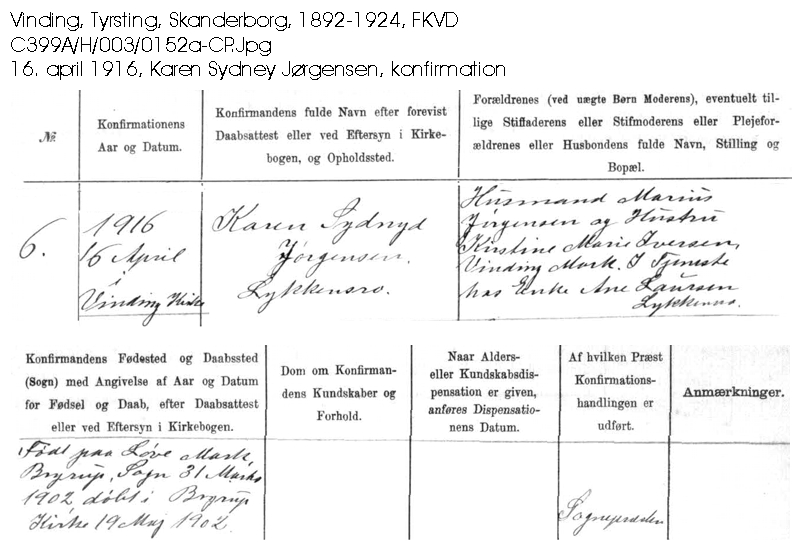 Vinding, Tyrsting, Skanderborg, 1892-1924, FKVD
C399A/H/003/0152a-CP.Jpg
16. april 1916, Karen Sydney Jørgensen, konfirmation
№
Konfirmationens
Aar og Datum.
Konfirmandens fulde Navn efter forevist
Daabsattest eller ved Eftersyn i Kirke-
bogen, og Opholdssted.
Forældrenes (ved uægte Børn Moderens), eventuelt til-
lige Stiffaderens eller Stifmoderens eller Plejefor-
ældrenes eller Husbondens fulde Navn, Stilling og
Bopæl.
6.
1916
16 April
i
Vinding Kirke
Karen Sydnyd
Jørgensen.
Lykkensro.
Husmand Marius
Jørgensen og Hustru
Kirstine Marie Iversen,
Vinding Mark. I Tjeneste
hos Enke Ane Laursen
Lykkensro.
Konfirmandens Fødested og Daabssted
(Sogn) med Angivelse af Aar og Datum
for Fødsel og Daab, efter Daabsattest
eller ved Eftersyn i Kirkebogen.
Dom om Konfirman-
dens Kundskaber og
Forhold.
Naar Alders-
eller Kundskabsdis-
pensation er given,
anføres Dispensatio-
nens Datum.
Af hvilken Præst
Konfirmations-
handlingen er
udført.
Anmærkninger.
Født paa Løve Mark,
Bryrup Sogn 31 Marts
1902 døbt i Bryrup
Kirke 19 Maj 1902.
Sognepræsten